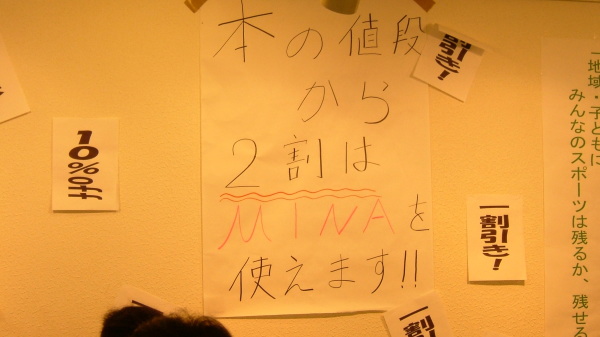 本の値段
から
2割は
MINAを
使えます!!
一割引き!
10%オフ
一割引き!
一割引
「地域・子どもに
みんなのスポーツは残るか、残せる